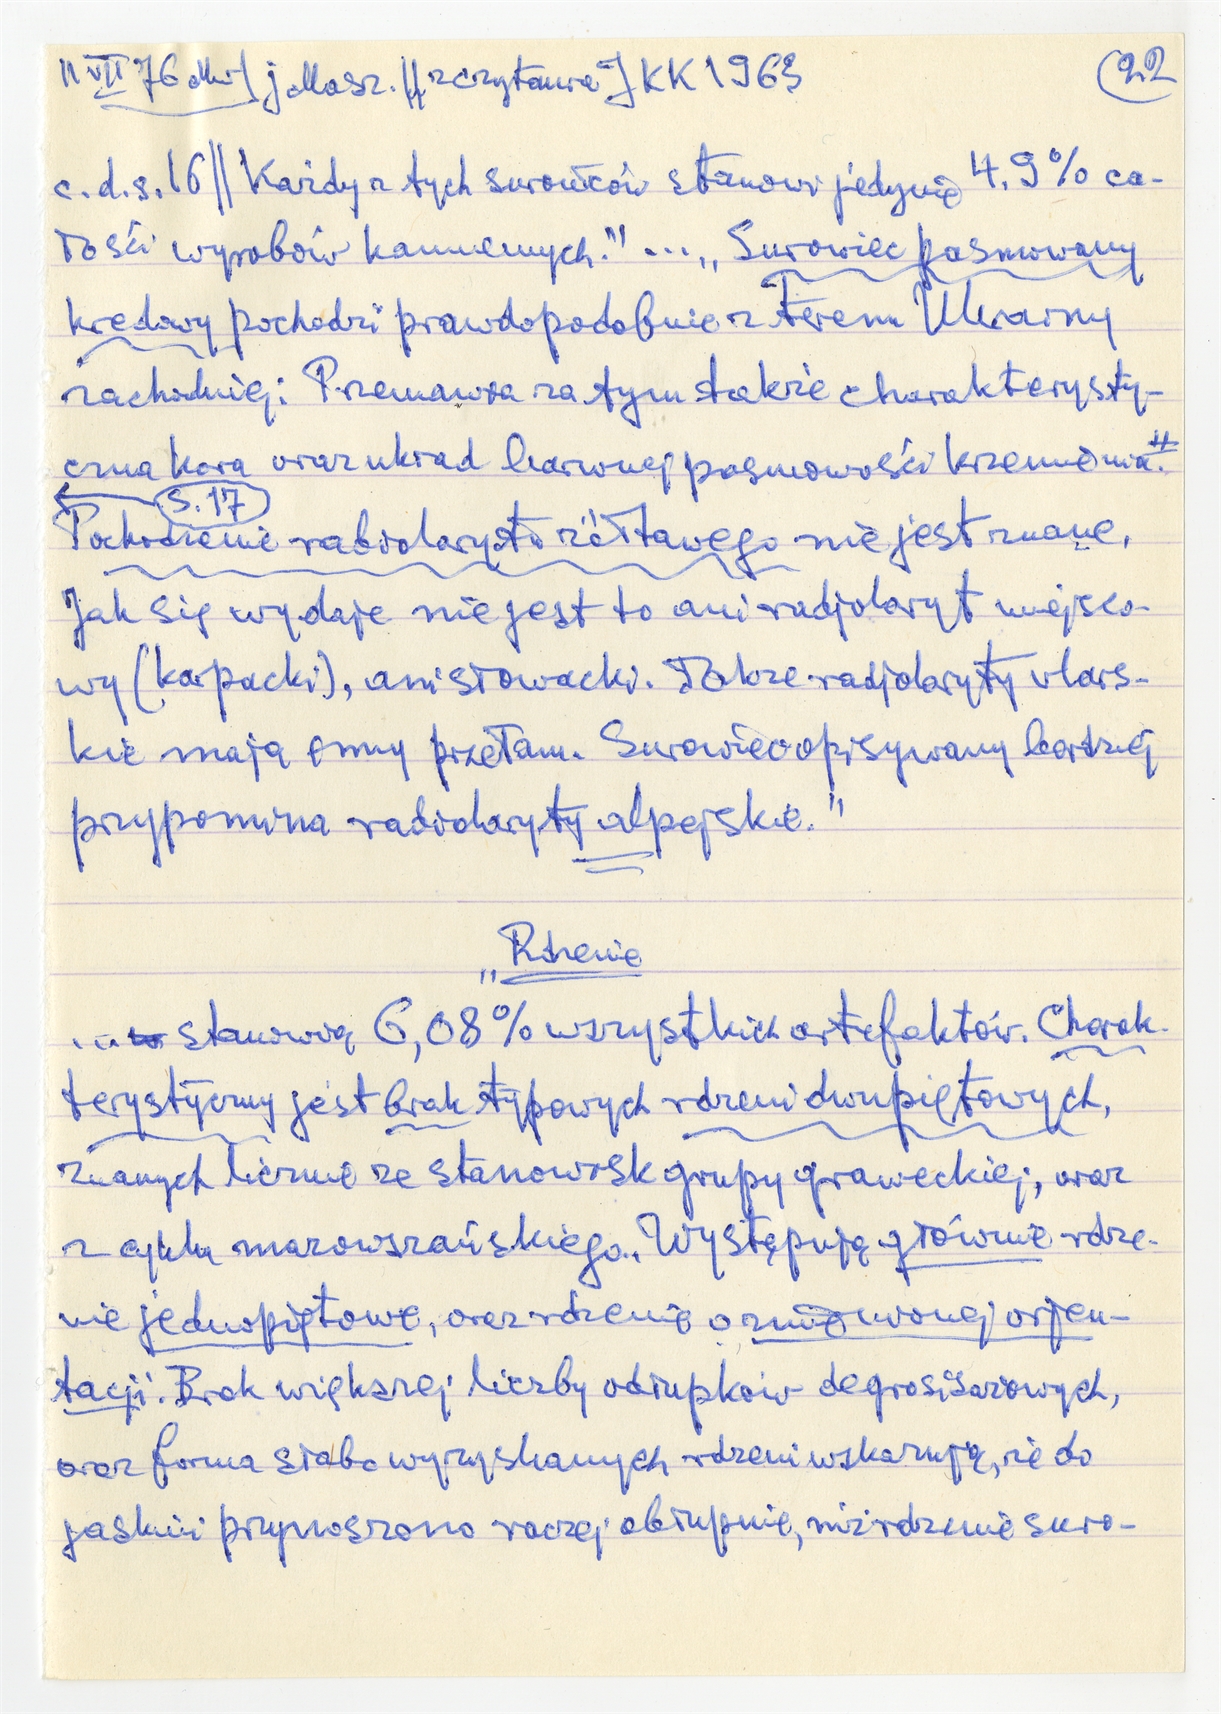 11 VII 76 j. Masz. // zczytania J KK 1963 (22
c.d.s. 16 || Każdy z tych surowców stanowi jedynie 4.9% ca-
łości wyrobów kamiennych." ... „Surowiec pasmowany
kredowy pochodzi prawdopodobnie z terenu Ukrainy
zachodniej: Przemawia za tym także charakterysty-
czna kora oraz układ barwnej pasmowości krzemienia."
s. 17
Pochodzenie radiolarytu żółtawego nie jest znane,
Jak się wydaje nie jest to ani radjolaryt miejsco-
wy (karpacki), ani słowacki. Także radjolaryty vlars-
kie mają inny przełam. Surowiec opisywany bardziej
przypomina radiolaryty alpejskie."
„Rdzenie
... stanowią 6,08% wszystkich artefaktów. Charak-
terystyczny jest brak typowych rdzeni dwupiętowych,
znanych licznie ze stanowisk grupy graweckiej, oraz
z cyklu mazowszańskiego. Występują głównie rdze-
nie jednopiętowe, oraz rdzenie o zmienionej orjen-
tacji. Brak większej liczby odłupków degrosisażowych,
oraz forma słabo wyzyskanych rdzeni wskazują, że do
jaskini przynoszono raczej obłupnie, niż rdzenie suro-